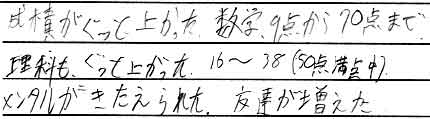 成積がぐっと上がった 数学、9点から70点まで.
理科も、ぐっと上がった. 16〜38(50点満点中).
メンタルがきたえられた. 友達が増えた